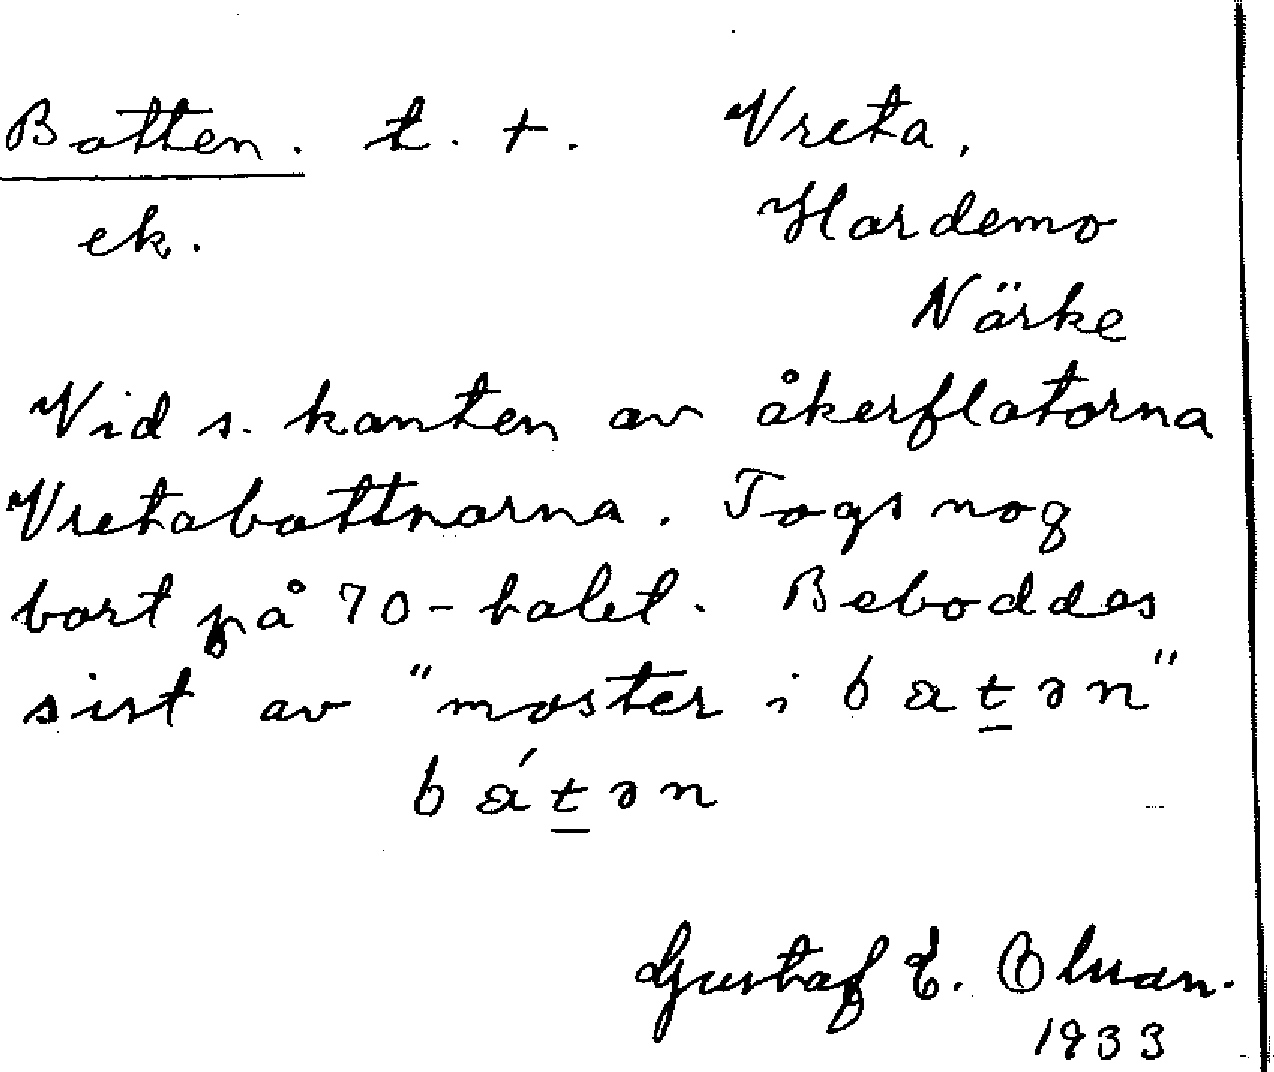 Botten. t. +. Vreta,
ek. Hardemo
Närke
Vid s. kanten av åkerflatorna
Vretabottnarna. Togs nog
bort på 70-talet. Beboddes
sist av "moster i batən"
bátən
Gustaf E. Olsson.
1933